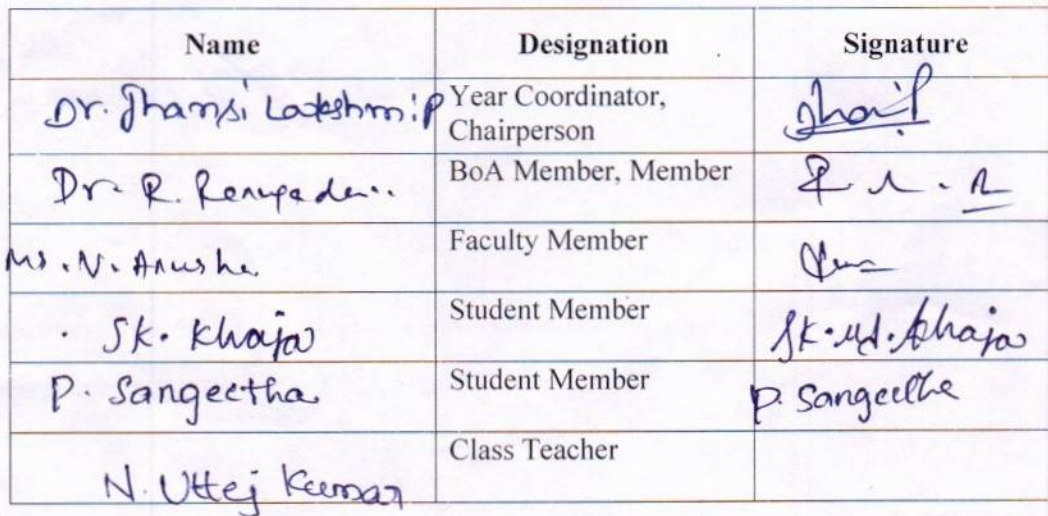 Name Designation Signature
Dr. Jhansi Lakshmi P Year Coordinator,
Chairperson
Dr. R. BoA Member, Member
Ms. N. Anusha Faculty Member
SK. Khaja Student Member SK. Md. Khaja
P. Sangeetha Student Member P. Sangeetha
N. Uttej Kumar Class Teacher